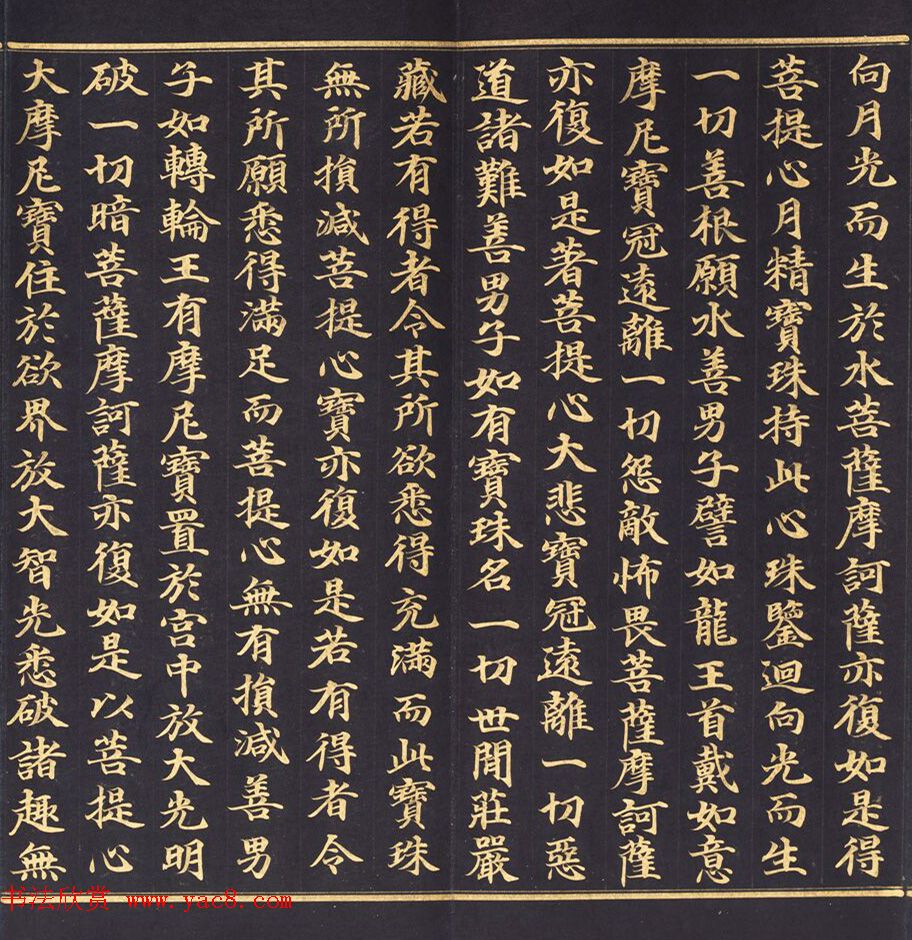 向月光而生於水菩薩摩訶薩亦復如是得
菩提心月精寶珠持此心珠鑒迴向光而生
一切善根願水善男子譬如龍王首戴如意
摩尼寶冠遠離一切怨敵怖畏菩薩摩訶薩
亦復如是著菩提心大悲寶冠遠離一切惡
道諸難善男子如有寶珠名一切世間莊嚴
藏若有得者令其所欲悉得充滿而此寶珠
無所損減菩提心寶亦復如是若有得者令
其所願悉得滿足而菩提心無有損減善男
子如轉輪王有摩尼寶置於宮中放大光明
破一切暗菩薩摩訶薩亦復如是以菩提心
大摩尼寶住於欲界放大智光悉破諸趣無
书法欣赏 www.yac8.com